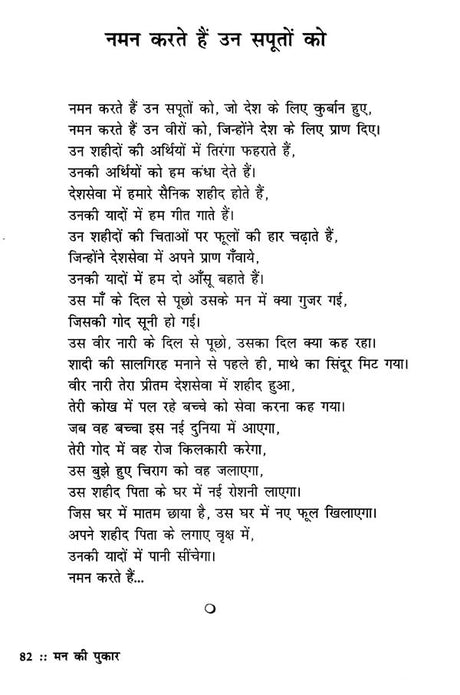 नमन करते हैं उन सपूतों को
नमन करते हैं उन सपूतों को, जो देश के लिए कुर्बान हुए,
नमन करते हैं उन वीरों को, जिन्होंने देश के लिए प्राण दिए।
उन शहीदों की अर्थियों में तिरंगा फहराते हैं,
उनकी अर्थियों को हम कंधा देते हैं।
देशसेवा में हमारे सैनिक शहीद होते हैं,
उनकी यादों में हम गीत गाते हैं।
उन शहीदों की चिताओं पर फूलों की हार चढ़ाते हैं,
जिन्होंने देशसेवा में अपने प्राण गँवाये,
उनकी यादों में हम दो आँसू बहाते हैं।
उस माँ के दिल से पूछो उसके मन में क्या गुजर गई,
जिसकी गोद सूनी हो गई।
उस वीर नारी के दिल से पूछो, उसका दिल क्या कह रहा।
शादी की सालगिरह मनाने से पहले ही, माथे का सिंदूर मिट गया।
वीर नारी तेरा प्रीतम देशसेवा में शहीद हुआ,
तेरी कोख में पल रहे बच्चे को सेवा करना कह गया।
जब वह बच्चा इस नई दुनिया में आएगा,
तेरी गोद में वह रोज किलकारी करेगा,
उस बुझे हुए चिराग को वह जलाएगा,
उस शहीद पिता के घर में नई रोशनी लाएगा।
जिस घर में मातम छाया है, उस घर में नए फूल खिलाएगा।
अपने शहीद पिता के लगाए वृक्ष में,
उनकी यादों में पानी सींचेगा।
नमन करते हैं...
82 :: मन की पुकार